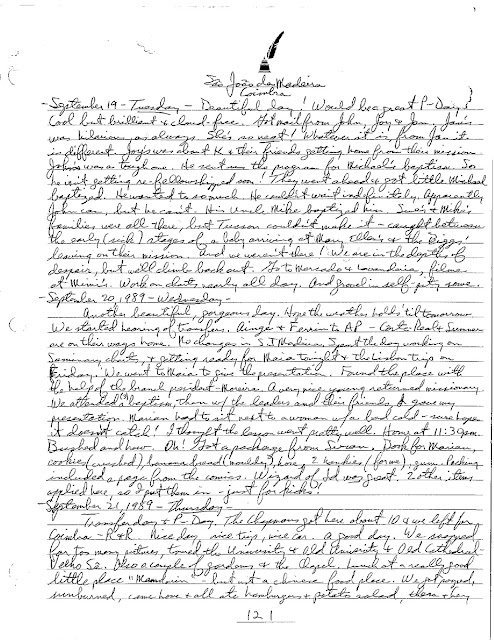 São João da Madeira
Coimbra
- September 19 - Tuesday - Beautiful day! Would be a great P-Day!
Cool but brilliant & cloud-free. Got mail from John, Joy & Jan. Jan's
was hilarious, as always. She's so neat! Whatever it is, from Jan it
is different. Joy's was about K & their friends getting home from their mission
John's was a tough one. He sent us the program for Michael's baptism. So
he isn't getting re-fellowshipped soon! They went ahead & got little Michael
baptized. He wanted to so much. He couldn't wait indefinitely. Apparently
John can, but he can't. His Uncle Mike baptized him. & Mike's
families were all there, but Tucson couldn't make it - caught between
the early (sick) stages of a baby arriving at Mary Ellen's & the Biggs'
leaving on their mission. And we weren't there! We are in the depths of
despair, but we'll climb back out. Go to Mercado & Lavandaria, films
at Mimi's. Work on charts, nearly all day. And grovel in self-pity some.
- September 20, 1989 - Wednesday -
Another beautiful, gorgeous day. Hope the weather holds 'til tomorrow
We started hearing of transfers. & to AP - Corte-Real & Sumner
are on their ways home! No changes in S.J. Madeira. Spent the day working on
Seminary charts, & getting ready for Maia tonight & the Lisbon trip on
Friday. We went to Maia to give the presentation. Found the place with
the help of the branch president - Moreira. A very nice young returned missionary
We attended a baptism, then w/ the leaders and their friends, I gave my
presentation. Marian had to sit next to a woman w/ a bad cold - sure hope
it doesn't catch! I thought the lesson went pretty well. Home at 11:30pm.
Bushed and how. Oh! Got a package from Susan. Book for Marian,
cookies (crushed), banana bread (mouldy), hose, 2 hankies (for me), gum. Packing
included a page from the comics. Wizard of Id was great. 2 other items
applied here, so I put them in - just for kicks!
- September 21, 1989 - Thursday -
Transfer day & P-Day. The Chapmans got here about 10 & we left for
Coimbra - R&R. Nice day, nice trip, nice car. A good day. We snapped
far too many pictures, toured the University & Old University & Old Cathedral -
Velho Sé. Also a couple of gardens & the Chapel. Lunch at a really good
little place "Mandarin" - but not a chinese food place. We got pooped,
sunburned, came home & all ate hamburgers & potato salad, then they
121